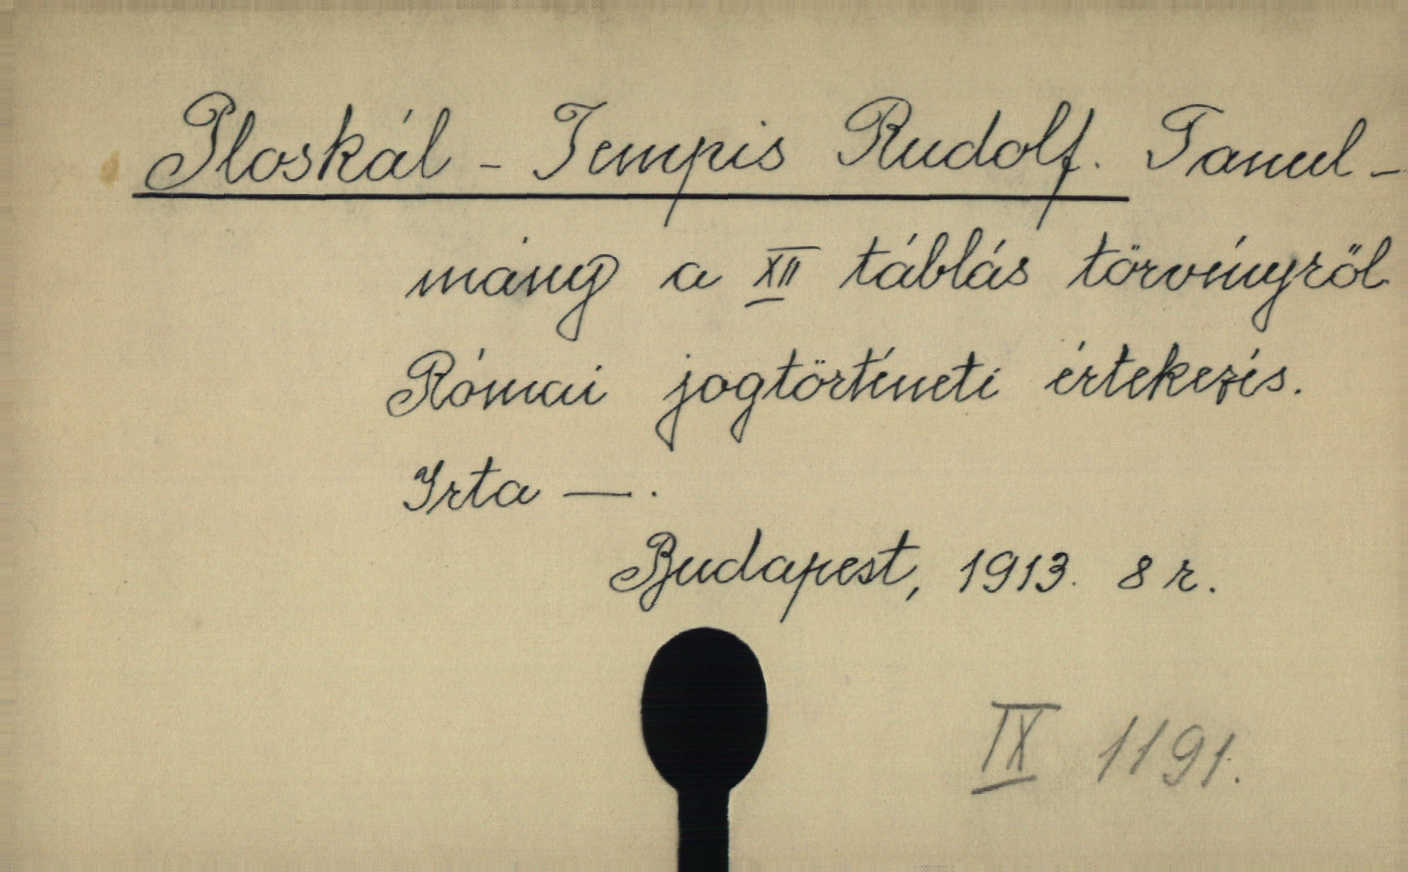 Ploskál - Tempis Rudolf. Tanul-
mány a XII táblás törvényről
Római jogtörténeti értekezés.
Irta —.
Budapest, 1913. 8 r.
IX 1191.